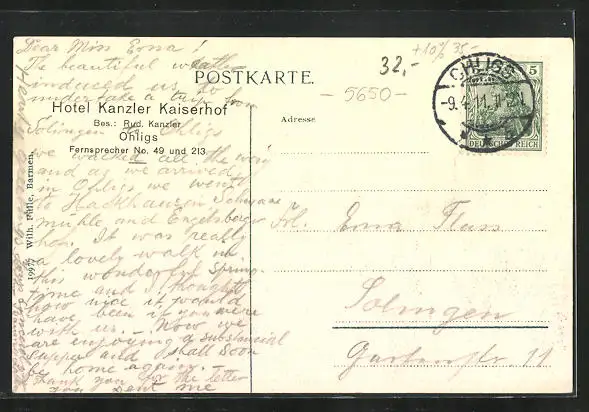 Dear Miss Erna!
The beautiful weather
induced us to
undertake a trip from
Solingen to Ohligs
we walked all the way
and as we arrived
in Ohligs we went
to Hackhausen Schwane
mühle and Engelsberger
hof. It was really
a lovely walk in
this wonderful Spring
time and I thought
how nice it would
have been if you were
with us. – Now we
are enjoying a substancial
Supper and shall soon
be home again.
Thank you for the letter
you sent me
POSTKARTE.
Hotel Kanzler Kaiserhof
Bes.: Rud. Kanzler
Ohligs
Fernsprecher No. 49 und 213
19977 Wilh. Fülle, Barmen.
32,-
+10% 35,-
-5650-
Adresse
OHLIGS
-9.4.11.
5
DEUTSCHES REICH
Frl. Erna Fluss
Solingen
Gartenstr. 11